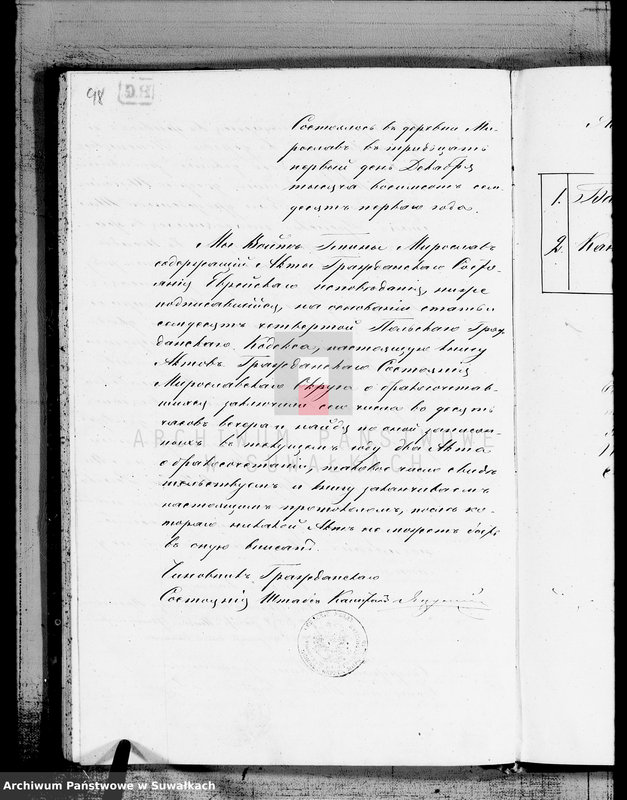 98
Состоялось въ деревни Ми-
рославъ въ тридцать
первый день Декабря
тысяча восимсотъ сем-
десятъ перваго года.
Мы Войтъ Гмины Мирославъ
содержащій Акты Гражданскаго Состо-
янія Еврейскаго исповѣданія, ниже
подписавшійся, на основаніи статьи
семдесятъ четвертой Польскаго Граж-
данскаго Кодекса, настоящую книгу
Актовъ Гражданскаго Состоянія
Мирославскаго Округа о бракосочетав-
шихся заключили сего числа во десять
часовъ вечера и найдя по оной записан-
ныхъ въ текущемъ году два Акта
о бракосочетаніи, таковое число свидѣ-
тельствуемъ и книгу заканчиваемъ
настоящимъ протоколомъ, послѣ ко-
тораго никакой Актъ не можетъ быть
въ оную вписанъ.
Чиновникъ Гражданскаго
Состоянія Штабсъ Капитанъ
1.
2.
ARCHIWUM PAŃSTWOWE
W SUWAŁKACH
Archiwum Państwowe w Suwałkach